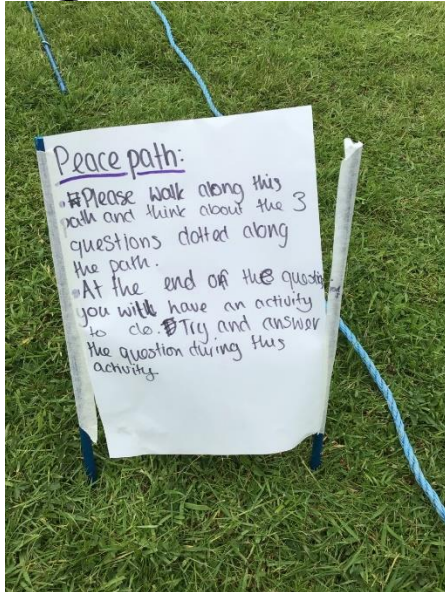 Peace path:
• Please walk along this
path and think about the 3
questions dotted along
the path.
• At the end of the question
you will have an activity
to do. Try and answer
the question during this
activity.